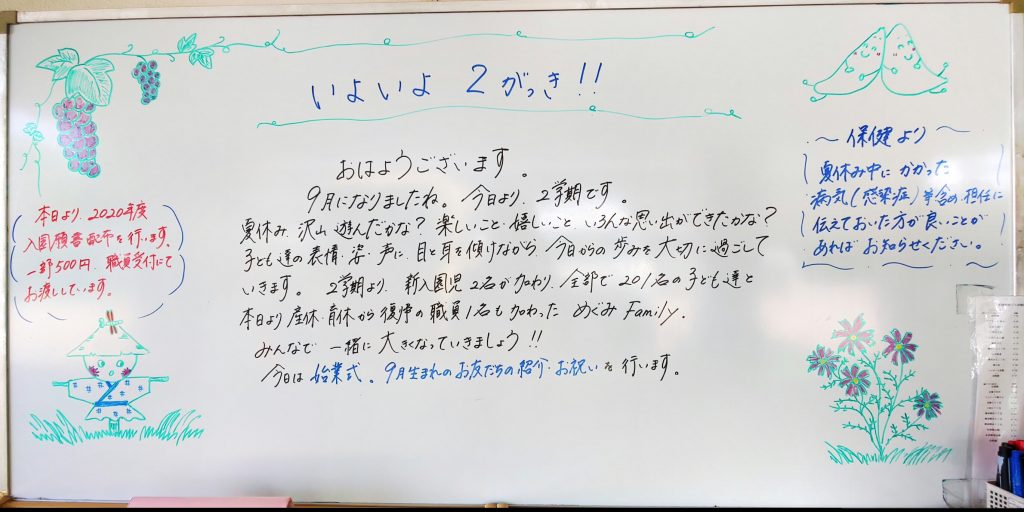 いよいよ 2がっき!!
おはようございます。
9月になりましたね。今日より、2学期です。
夏休み、沢山遊んだかな?楽しいこと・嬉しいこと、いろんな思い出ができたかな?
子ども達の表情・姿・声に、目と耳を傾けながら、今日からの歩みを大切に過ごして
いきます。 2学期より、新入園児2名が加わり、全部で201名の子ども達と
本日より産休・育休から復帰の職員1名も加わった めぐみFamily.
みんなで 一緒に 大きくなっていきましょう!!
今日は 始業式、9月生まれのお友だちの紹介・お祝いを行います。
本日より、2020年度
入園願書配布を行います。
一部500円、職員受付にて
お渡ししています。
〜保健より〜
夏休み中に かかった
病気(感染症)等、の担任に
伝えておいた方が良いことが
あればお知らせください。